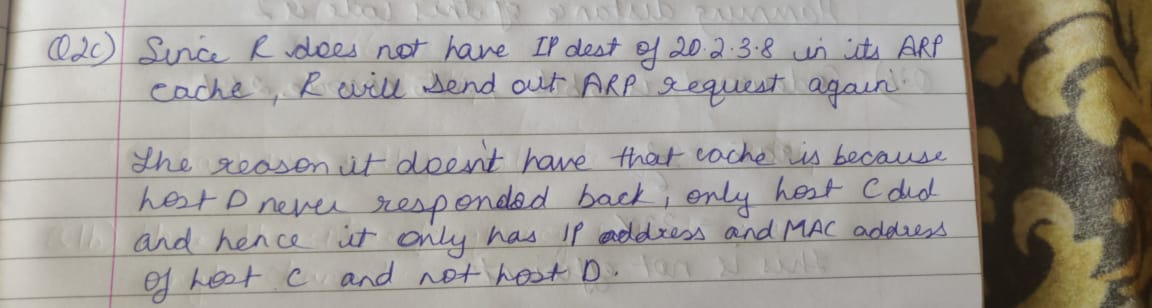 Q2c) Since R does not have IP dest of 20.2.3.8 in its ARP
cache, R will send out ARP request again.
The reason it doesn't have that cache is because
host D never responded back, only host C did
and hence it only has IP address and MAC address
of host C and not host D.